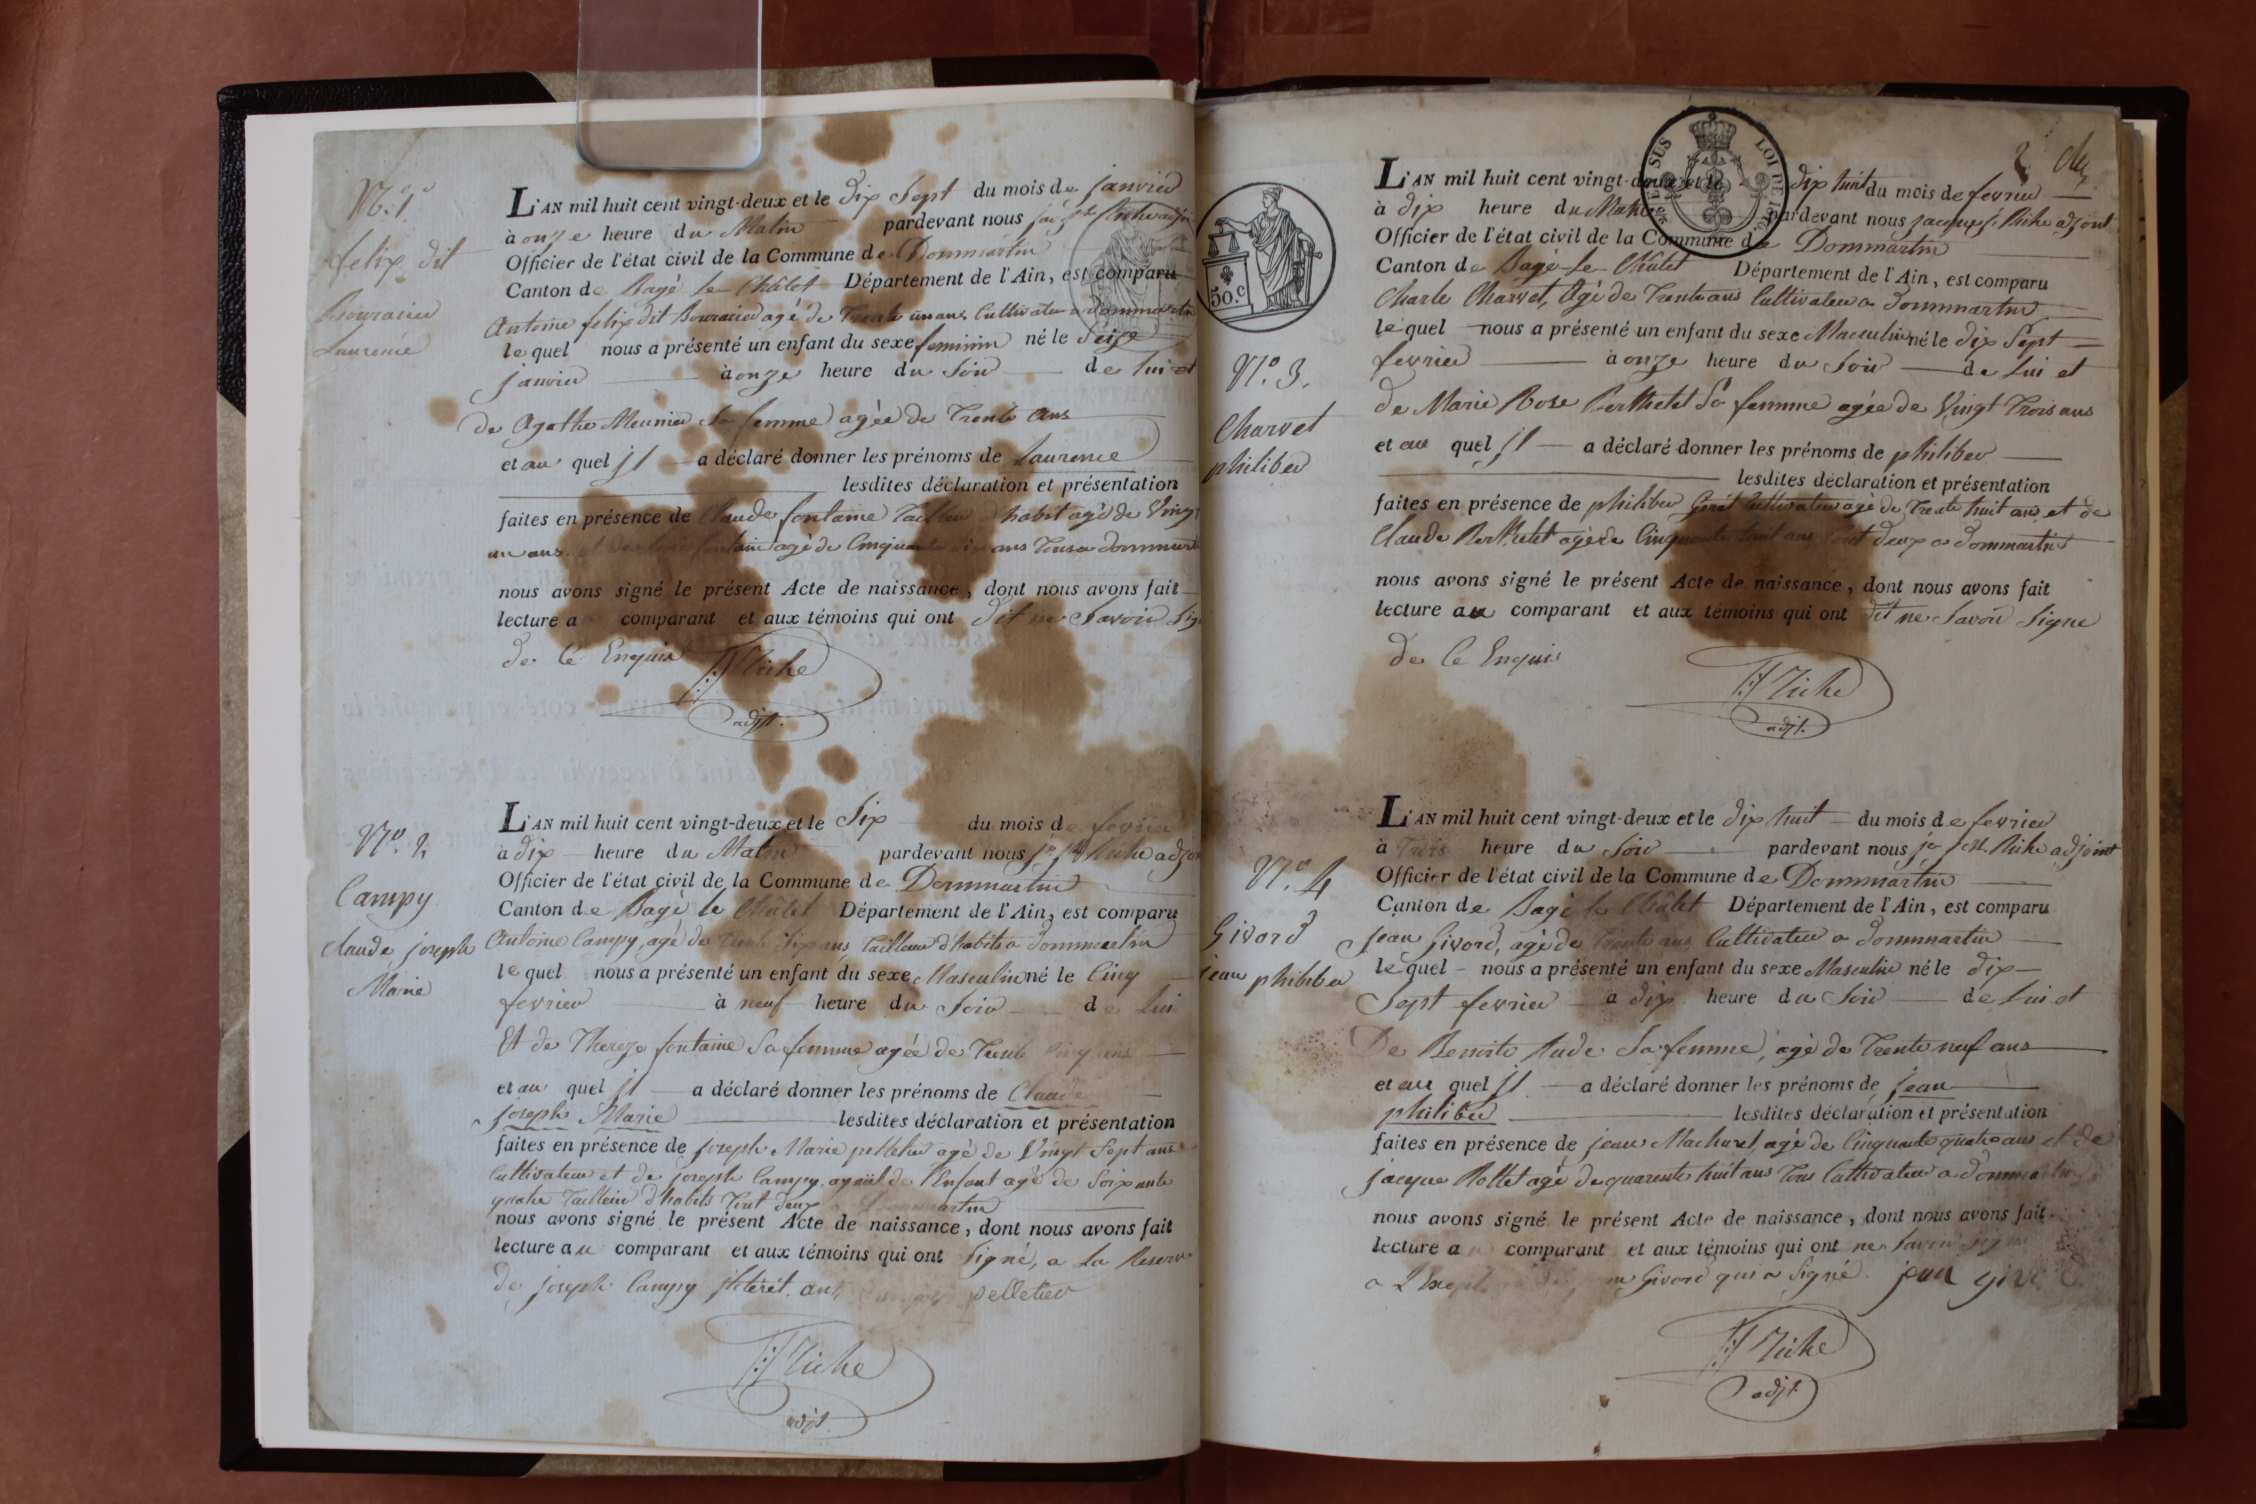 N.o 1
felix dit
Bouracier
Laurence
L'AN mil huit cent vingt-deux et le dix Sept du mois de janvier
à onze heure du Matin pardevant nous jac. f. Riche adjoint
Officier de l'état civil de la Commune de Dommartin
Canton de Bagé le Châtel Département de l'Ain, est comparu
Antoine felix dit agé de Trente un ans Cultivateur a dommartin
lequel nous a présenté un enfant du sexe feminin né le Seize
janvier à onze heure du Soir de lui et
de Agathe Meunier Sa femme agée de Trente ans
et au quel jl a déclaré donner les prénoms de Laurence
lesdites déclaration et présentation
faites en présence de Claude fontaine Tailleur d'habit agé de Vingt
un ans et agé de Cinquante ans Tous a dommartin
nous avons signé le présent Acte de naissance, dont nous avons fait
lecture a comparant et aux témoins qui ont dit ne Savoir Signe
de Ce Enquis Riche
adjt.
N.o 2
Campy
claude joseph
Marie
L'AN mil huit cent vingt-deux et le Six du mois de fevrier
à dix heure du Matin pardevant nous Riche adjoint
Officier de l'état civil de la Commune de Dommartin
Canton de Bagé le Châtel Département de l'Ain, est comparu
Antoine Campy, agé de Trente Six ans Tailleur d'habits a dommartin
lequel nous a présenté un enfant du sexe Masculin né le Cinq
fevrier à neuf heure du Soir de Lui
Et de Thereze fontaine Sa femme agée de Trente Cinq ans
et au quel jl a déclaré donner les prénoms de Claude
joseph Marie lesdites déclaration et présentation
faites en présence de joseph Marie pelletier agé de Vingt Sept ans
Cultivateur et de joseph Campy ayeül de l'Enfant agé de Soixante
quatre Tailleur d'habits Tout deux a Dommartin
nous avons signé le présent Acte de naissance, dont nous avons fait
lecture au comparant et aux témoins qui ont Signé, a la Reserve
de joseph Campy jlliterét. ant pelletier
Riche
adjt.
2
SUS LOI DE
50.c
L'AN mil huit cent vingt-deux et le dix huit du mois de fevrier
à dix heure du Matin pardevant nous jacque f. Riche adjoint
Officier de l'état civil de la Commune de Dommartin
Canton de Bagé le Châtel Département de l'Ain, est comparu
Charle Charvet, Agé de Trente ans Cultivateur a dommartin
lequel nous a présenté un enfant du sexe Masculin né le dix Sept
fevrier à onze heure du Soir de Lui et
de Marie Rose Berthelet Sa femme agée de Vingt Trois ans
et au quel jl a déclaré donner les prénoms de philiber
lesdites déclaration et présentation
faites en présence de philiber Cultivateur agé de Trente huit ans et de
Claude Berthelet agé de Cinquante huit ans tout deux a dommartin
nous avons signé le présent Acte de naissance, dont nous avons fait
lecture au comparant et aux témoins qui ont dit ne Savoir Signe
de Ce Enquis
Riche
adjt.
N.o 3.
Charvet
philiber
L'AN mil huit cent vingt-deux et le dix huit du mois de fevrier
à Trois heure du Soir pardevant nous Riche adjoint
Officier de l'état civil de la Commune de Dommartin
Canton de Bagé le Châtel Département de l'Ain, est comparu
jean Givord, agé de Trente ans Cultivateur a dommartin
lequel nous a présenté un enfant du sexe Masculin né le dix
Sept fevrier à dix heure du Soir de Lui et
De Benoite Sa femme, agé de Trente neuf ans
et au quel jl a déclaré donner les prénoms de jean
philiber lesdites déclaration et présentation
faites en présence de jean Machurel, agé de Cinquante quatre ans et de
jacque Rollet agé de quarente huit ans Tous Cultivateur a dommartin
nous avons signé le présent Acte de naissance, dont nous avons fait
lecture a comparant et aux témoins qui ont ne Savoir signe
a Givord qui a Signé. jean givord
Riche
adjt
N.o 4
Givord
jean philiber